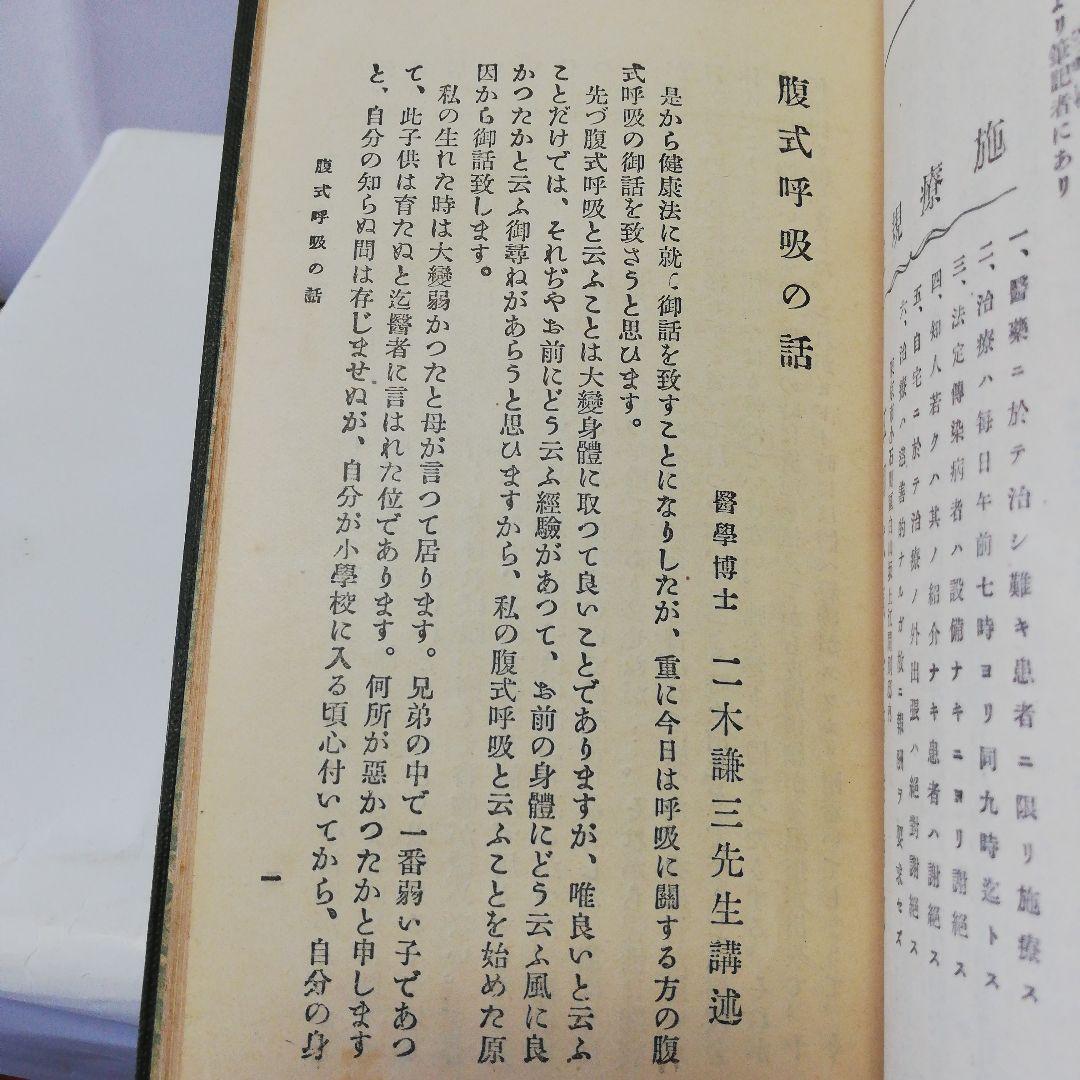 より筆記者にあり
施療規
一、醫藥ニ於テ治シ難キ患者ニ限リ施療ス
二、治療ハ每日午前七時ヨリ同九時迄トス
三、法定傳染病者ハ設備ナキニヨリ謝絕ス
四、知人若クハ其ノ紹介ナキ患者ハ謝絕ス
五、自宅ニ於テ治療ノ外出張ハ絕對謝絕ス
六、治療ハ慈善的ナルガ故ニ報酬ヲ要求セズ
腹式呼吸の話
醫學博士 二木謙三先生講述
是から健康法に就て御話を致すことになりしたが、重に今日は呼吸に關する方の腹
式呼吸の御話を致さうと思ひます。
先づ腹式呼吸と云ふことは大變身體に取つて良いことでありますが、唯良いと云ふ
ことだけでは、それぢやお前にどう云ふ經驗があつて、お前の身體にどう云ふ風に良
かつたかと云ふ御尋ねがあらうと思ひますから、私の腹式呼吸と云ふことを始めた原
因から御話致します。
私の生れた時は大變弱かつたと母が言つて居ります。兄弟の中で一番弱い子であつ
て、此子供は育たぬと迄醫者に言はれた位であります。何所が惡かつたかと申します
と、自分の知らぬ間は存じませぬが、自分が小學校に入る頃心付いてから、自分の身
腹式呼吸の話
一